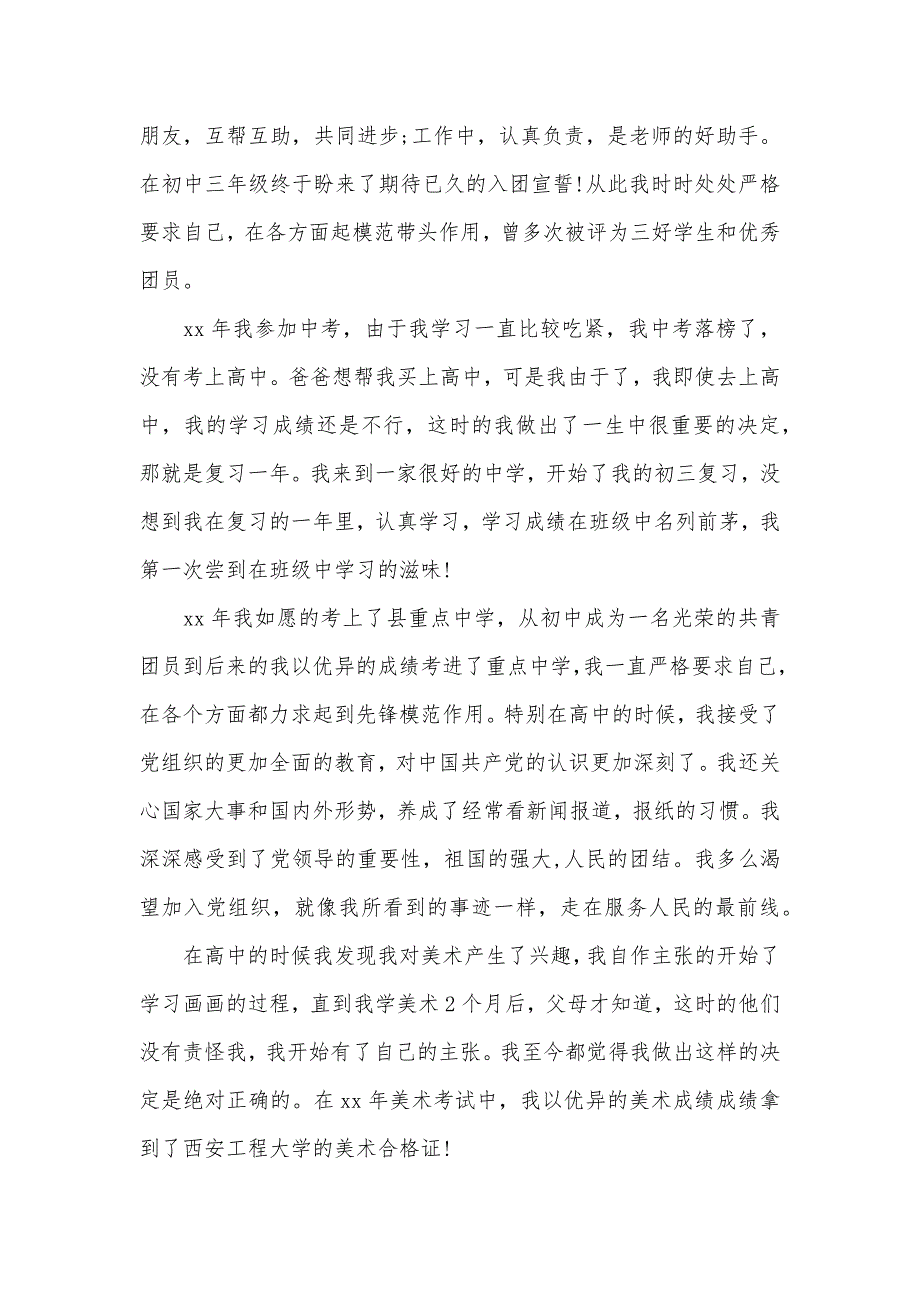 朋友，互帮互助，共同进步;工作中，认真负责，是老师的好助手。
在初中三年级终于盼来了期待已久的入团宣誓!从此我时时处处严格
要求自己，在各方面起模范带头作用，曾多次被评为三好学生和优秀
团员。
xx 年我参加中考，由于我学习一直比较吃紧，我中考落榜了，
没有考上高中。爸爸想帮我买上高中，可是我由于了，我即使去上高
中，我的学习成绩还是不行，这时的我做出了一生中很重要的决定，
那就是复习一年。我来到一家很好的中学，开始了我的初三复习，没
想到我在复习的一年里，认真学习，学习成绩在班级中名列前茅，我
第一次尝到在班级中学习的滋味!
xx 年我如愿的考上了县重点中学，从初中成为一名光荣的共青
团员到后来的我以优异的成绩考进了重点中学,我一直严格要求自己，
在各个方面都力求起到先锋模范作用。特别在高中的时候，我接受了
党组织的更加全面的教育，对中国共产党的认识更加深刻了。我还关
心国家大事和国内外形势，养成了经常看新闻报道，报纸的习惯。我
深深感受到了党领导的重要性，祖国的强大,人民的团结。我多么渴
望加入党组织，就像我所看到的事迹一样，走在服务人民的最前线。
在高中的时候我发现我对美术产生了兴趣，我自作主张的开始了
学习画画的过程，直到我学美术 2 个月后，父母才知道，这时的他们
没有责怪我，我开始有了自己的主张。我至今都觉得我做出这样的决
定是绝对正确的。在 xx 年美术考试中，我以优异的美术成绩成绩拿
到了西安工程大学的美术合格证!